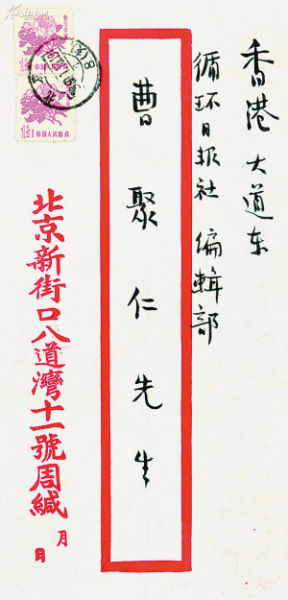 香港 大道东
循环日报社 编辑部
曹聚仁先生
北京新街口八道灣十一號周緘
月
日
中国人民邮政
中国人民邮政